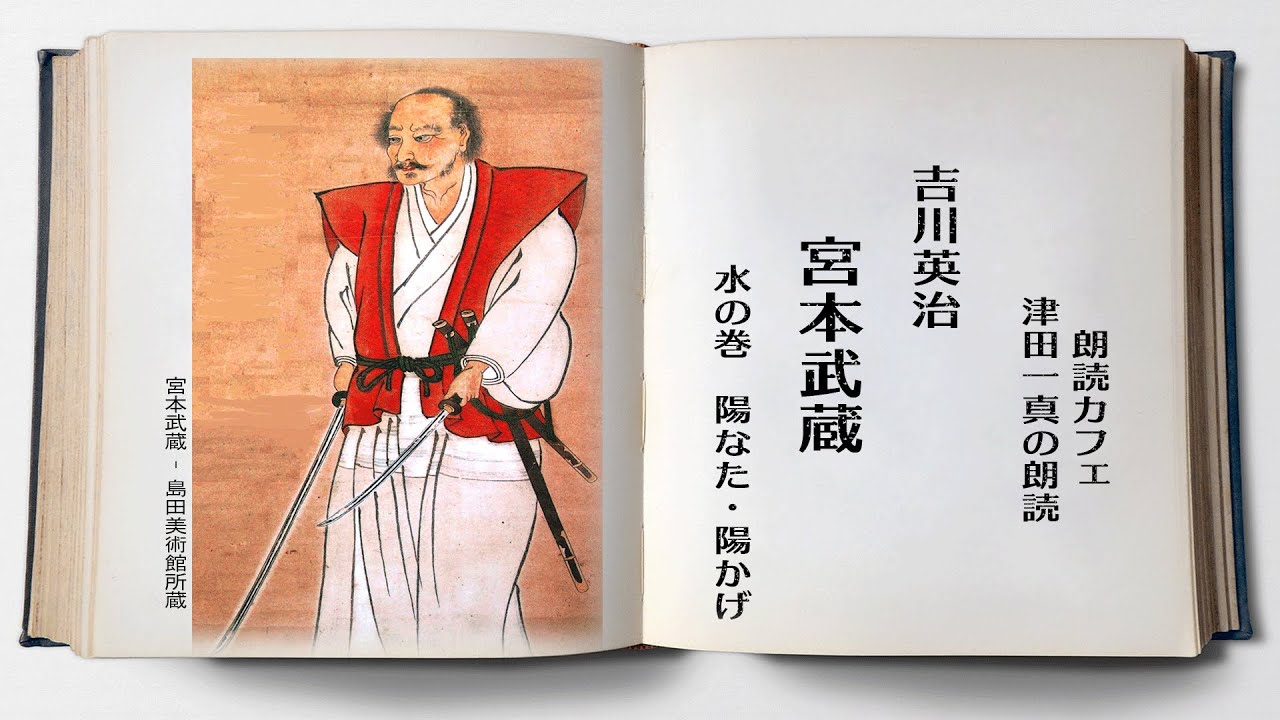 朗読カフェ
津田一真の朗読
吉川英治
宮本武蔵
水の巻　陽なた・陽かげ
宮本武蔵 - 島田美術館所蔵